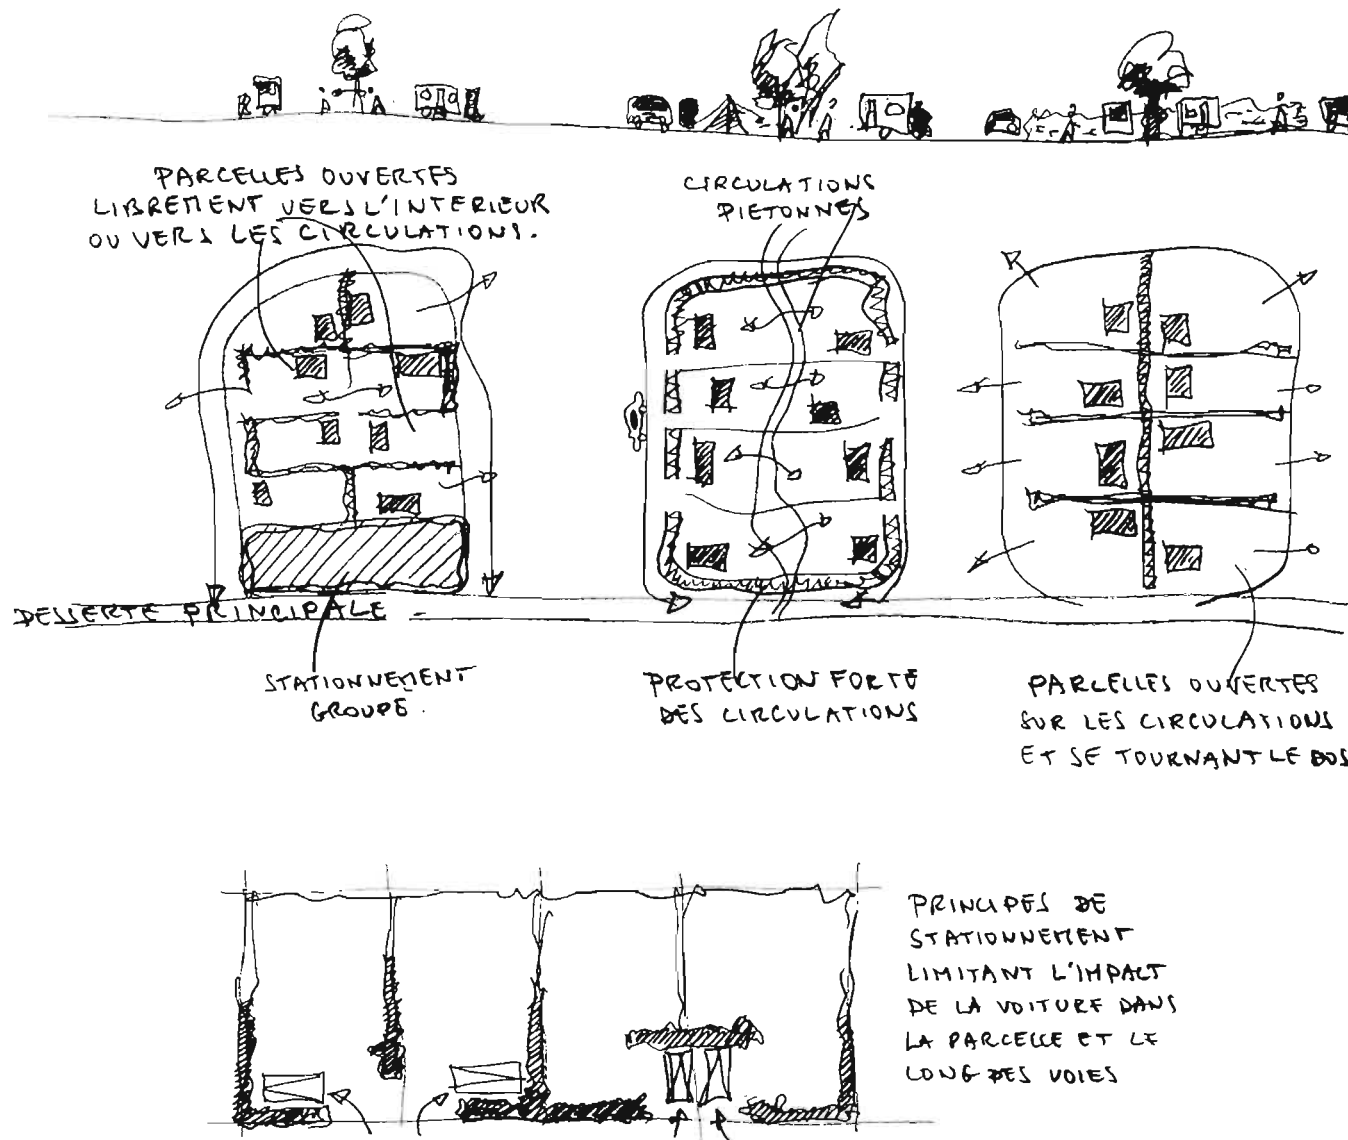 PARCELLES OUVERTES
LIBREMENT VERS L'INTERIEUR
OU VERS LES CIRCULATIONS.
CIRCULATIONS
PIETONNES
DESSERTE PRINCIPALE
STATIONNEMENT
GROUPÉ.
PROTECTION FORTE
DES CIRCULATIONS
PARCELLES OUVERTES
SUR LES CIRCULATIONS
ET SE TOURNANT LE DOS
PRINCIPES DE
STATIONNEMENT
LIMITANT L'IMPACT
DE LA VOITURE DANS
LA PARCELLE ET LE
LONG DES VOIES